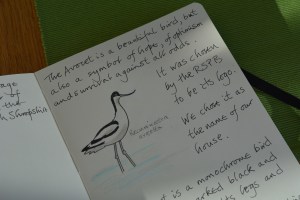 The Avocet is a beautiful bird, but
also a symbol of hope, of optimism
and survival against all odds.
It was chosen
by the RSPB
to be its logo.
We chose it as
the name of our
house.
t is a monochrome bird
arked black and
its legs and
age
of
the
Shropshire